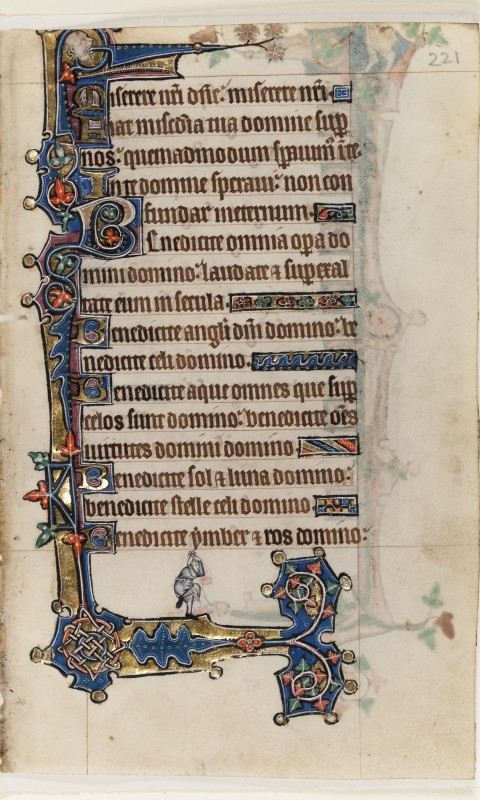 221
Miserere nr̄i dn̄e: miserere nr̄i
Fiat miscd̄ia tua domine sup̄
nos: quemadmodum sp̄auim̄ i te
In te domine speraui: non con
fundar ineternum.
Benedicite omnia op̄a do
mini domino: laudate ⁊ sup̄exal
tate eum in secula.
Benedicite angl̄i dn̄i domino: be
nedicite celi domino.
Benedicite aque omnes que sup̄
celos sunt domino: benedicite om̄s
uirtutes domini domino.
Benedicite sol ⁊ luna domino:
benedicite stelle celi domino
Benedicite ymber ⁊ ros domino: